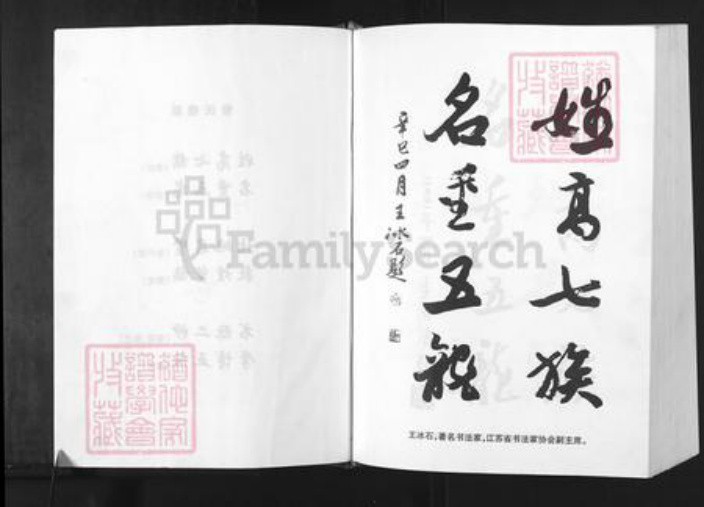 姓高七族
名重五龍
辛巳四月王冰石题
王冰石,著名书法家,江苏省书法家协会副主席。
FamilySearch